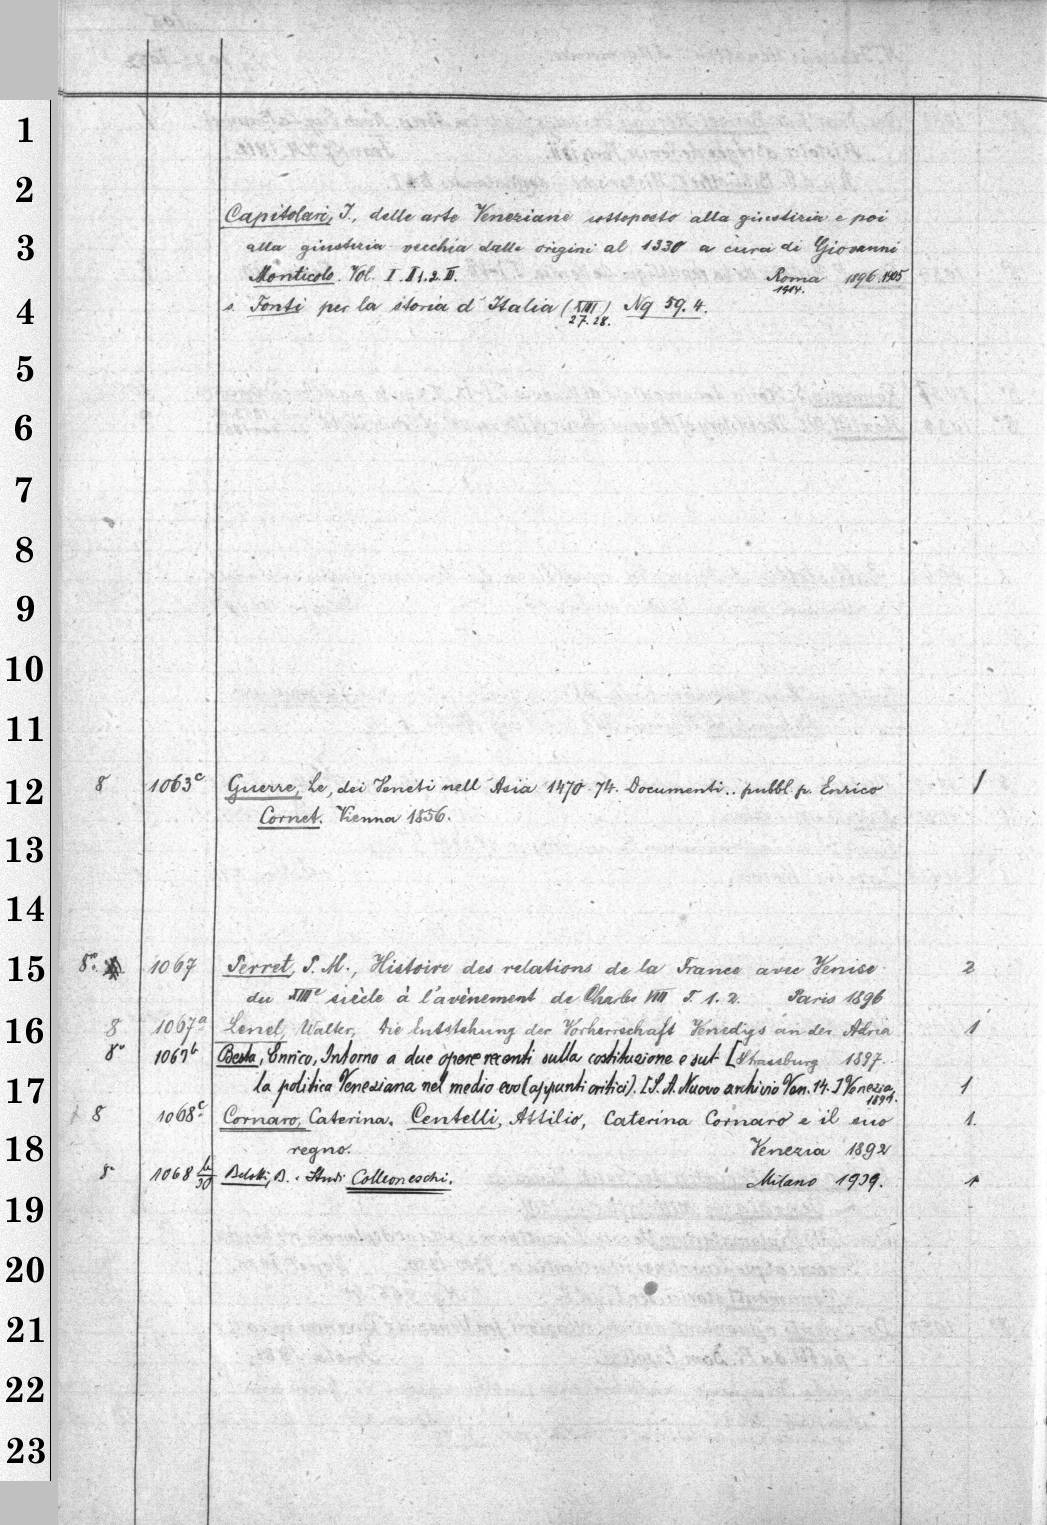 1
2
Capitolari, I, delle arte Veneziane sottoposto alla giustizia e poi
3
alla giustizia vecchia dalle origini al 1330 a cura di Giovanni
Monticolo. Vol. I. II 1. 2. III. Roma 1896. 1905
1914.
4
s. Fonti per la storia d'Italia (XIII) Ng 59. 4.
27. 28.
5
6
7
8
9
10
11
12
8 1063c Guerre, Le, dei Veneti nell'Asia 1470-74. Documenti.. pubbl. p. Enrico 1
Cornet. Vienna 1856.
13
14
15
8°. 1067 Perret, P. M., Histoire des relations de la France avec Venise 2
du XIIIe siècle à l'avènement de Charles VIII T. 1. 2. Paris 1896
16
8 1067a Lenel, Walter, Die Entstehung der Vorherrschaft Venedigs an der Adria 1
[Strassburg 1897.
8° 1067b Besta, Enrico, Intorno a due opere recenti sulla costituzione e sul
17
la politica Veneziana nel medio evo (appunti critici). [S. A. Nuovo archivio Ven. 14.] Venezia 1
1897.
8 1068c Cornaro, Caterina. Centelli, Attilio, Caterina Cornaro e il suo 1.
18
regno. Venezia 1892
8° 1068 Belotti, B. Studi Colleoneschi. Milano 1939. 1
19
20
21
22
23